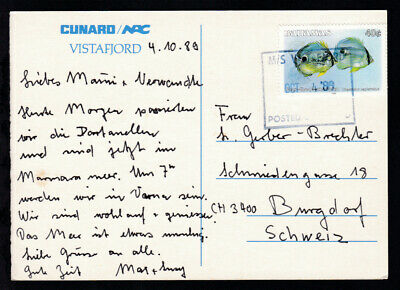 CUNARD/NAC
VISTAFJORD
4.10.89
Liebes Mami & Verwandte
Heute Morgen passierten
wir die Dardanellen
und sind jetzt im
Marmara meer. Um 7
werden wir in Varna sein.
Wir sind wohlauf & geniessen
Das Meer ist etwas unruhig
liebe Grüsse an alle.
Gute Zeit
BAHAMAS
40¢
M/S V
OCT 4 '89
POSTED
Frau
H. Gerber-Brechter
Schmiedengasse 18
CH 3400 Burgdorf
Schweiz